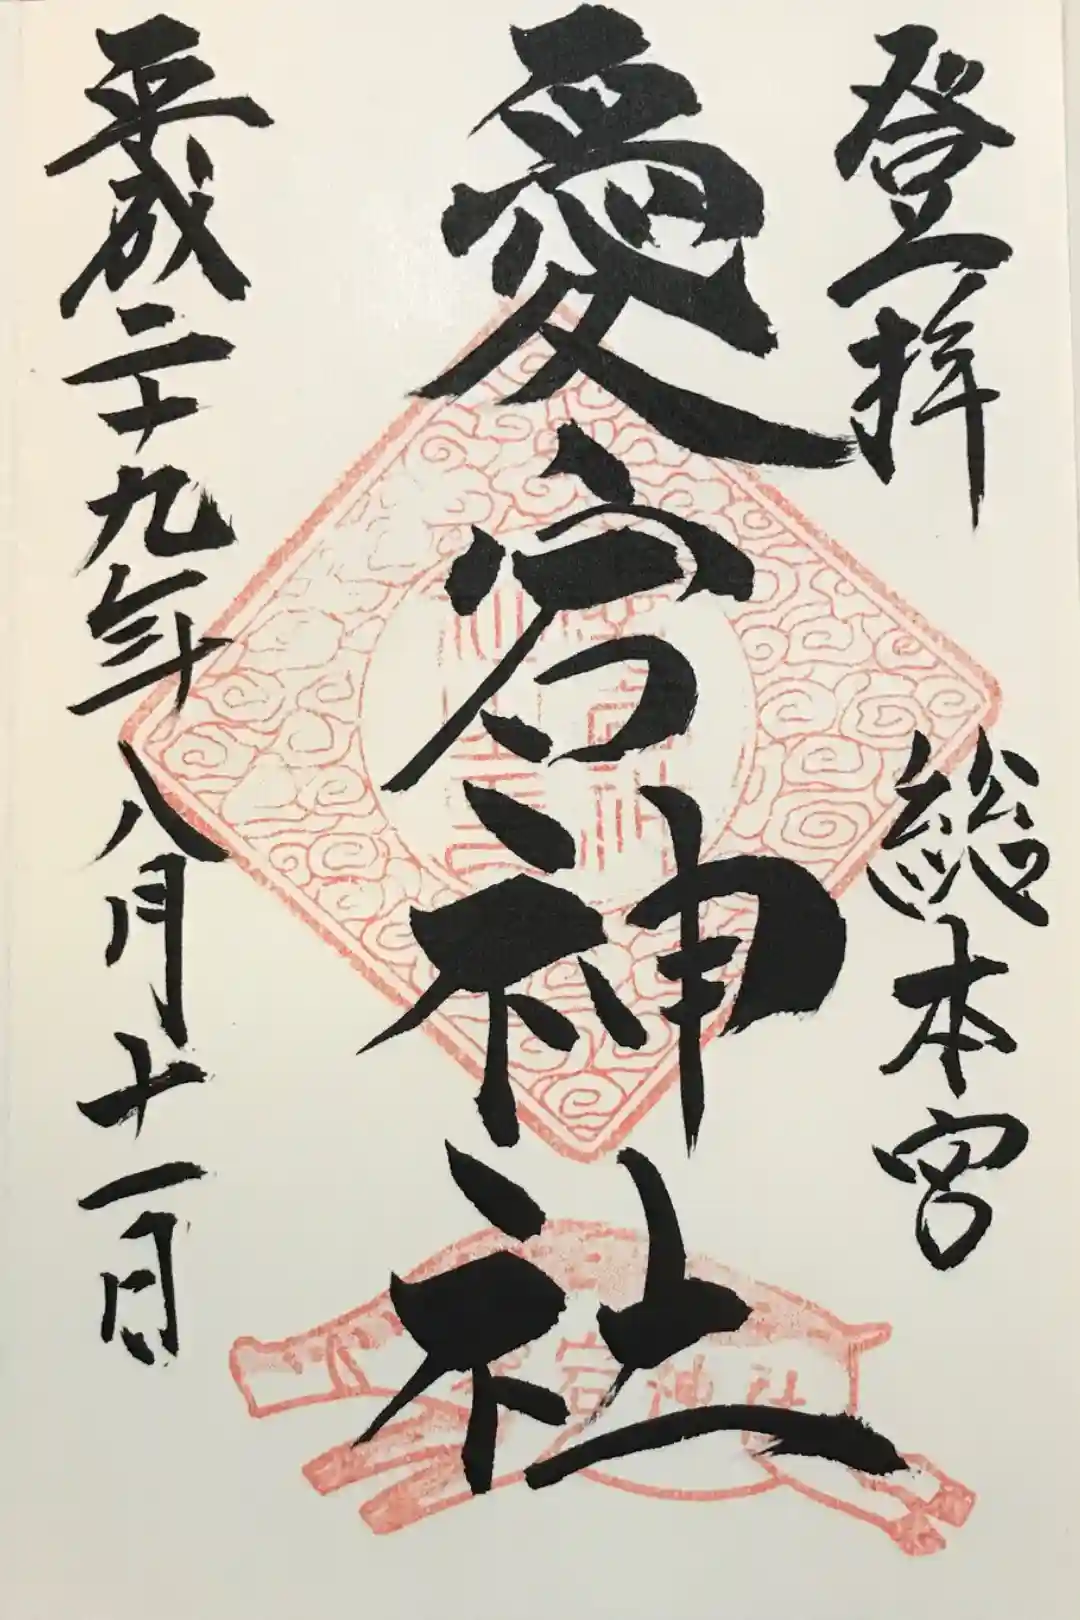 登拝
総本宮
愛宕神社
平成二十九年八月十一日
愛宕神社